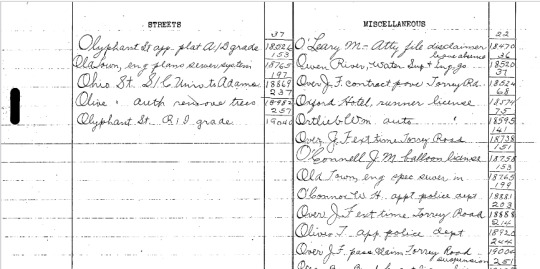 STREETS
37
Olyphant St app. plat A/D grade 18026
153
Old town, eng plans sewer system 18765
197
Ohio St. S/C Univ to Adams 18869
237
Olive " auth remove trees 18982
257
Olyphant St. R/D grade 19040
MISCELLANEOUS
22
O'Leary M - Atty file disclaimer 18470
leave absence 36
Owen River, Water Sup + Eng. go 18520
37
Over J. F. contract pave Torrey Rd. 18524
68
Oxford Hotel, runner license 18574
75
Ortlieb Wm auto " 18595
141
Over J F ext time Torrey Road 18738
151
O'Connell J. M. balloon license 18758
153
Old Town, eng spec sewer in 18765
199
O'Connor W. H. appt police dept 18881
203
Over J. F ext time, Torrey Road 18888
214
Oliver T app police dept 18920
244
Over J F pave claim Torrey Road 19004
suspension 251